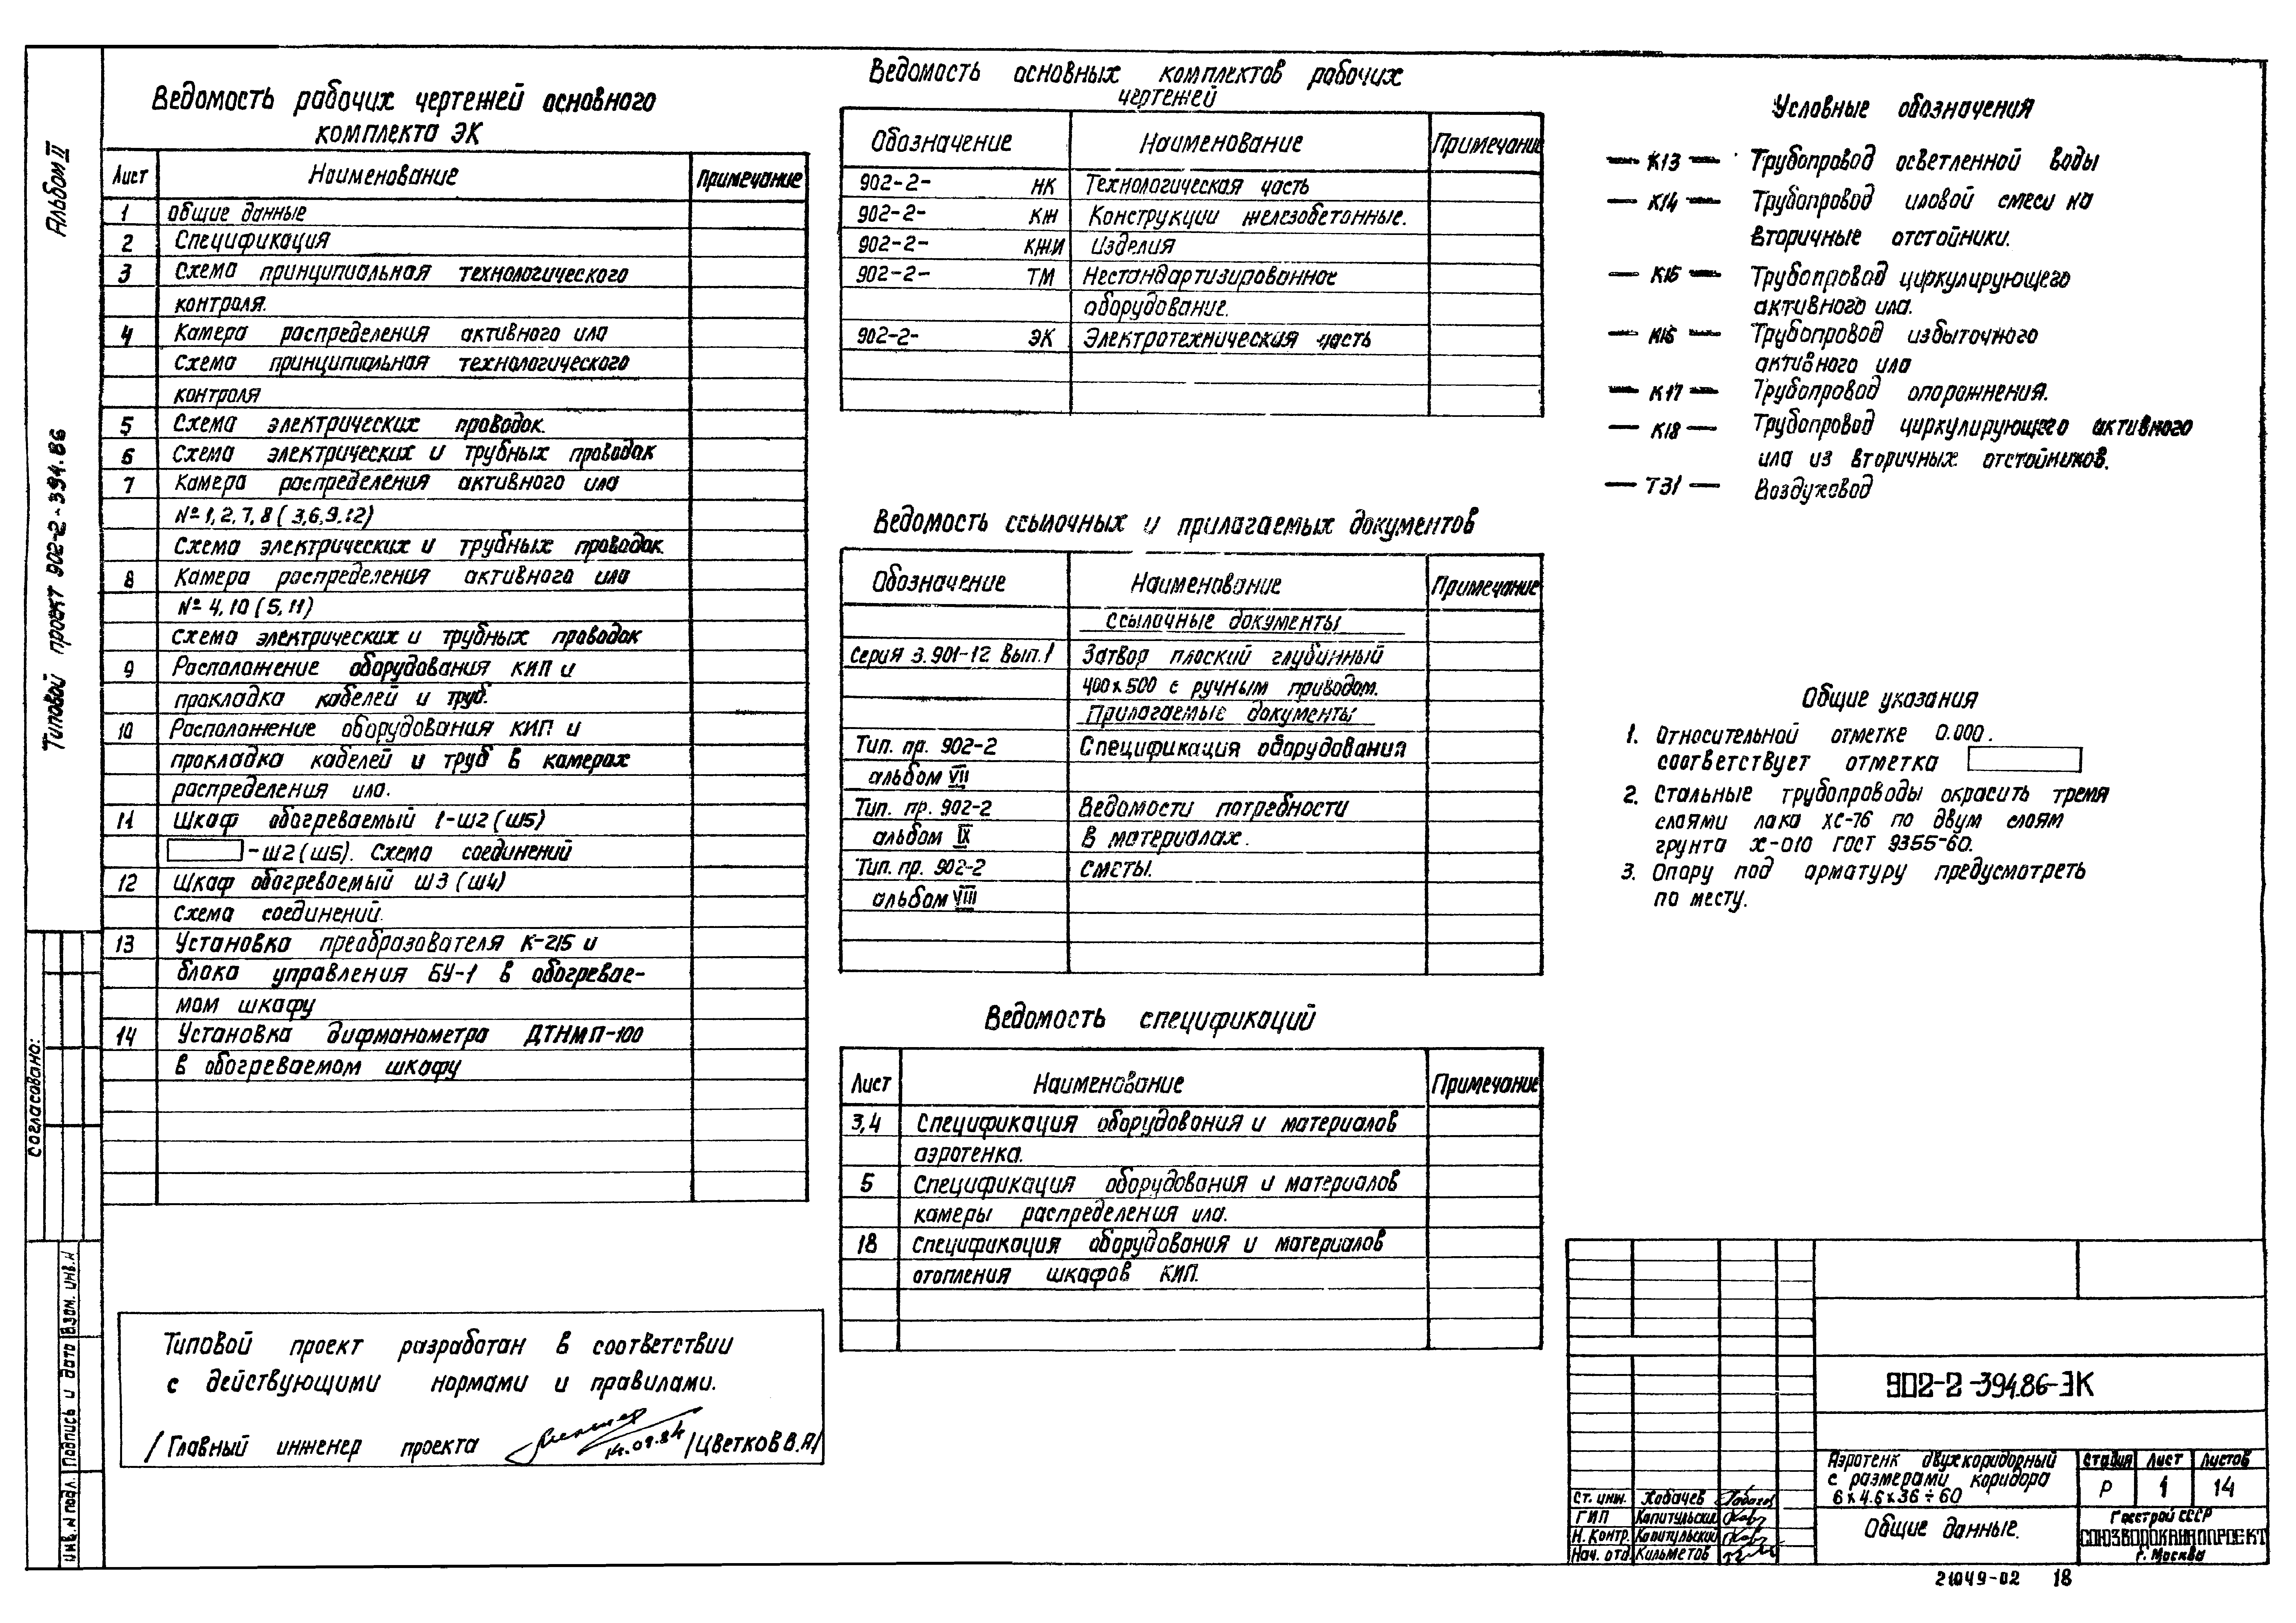 Альбом II
Типовой проект 902-2-394.86
Согласовано:
Инв. N подл.
Подпись и дата
Взам. инв. N
Ведомость рабочих чертежей основного
комплекта ЭК
Лист Наименование Примечание
1 Общие данные
2 Спецификация
3 Схема принципиальная технологического
контроля.
4 Камера распределения активного ила
Схема принципиальная технологического
контроля
5 Схема электрических проводок.
6 Схема электрических и трубных проводок
7 Камера распределения активного ила
№ 1, 2, 7, 8 ( 3,6,9,12)
Схема электрических и трубных проводок.
8 Камера распределения активного ила
№ 4, 10 ( 5, 11)
Схема электрических и трубных проводок
9 Расположение оборудования КИП и
прокладка кабелей и труб.
10 Расположение оборудования КИП и
прокладка кабелей и труб в камерах
распределения ила.
11 Шкаф обогреваемый 1-Ш2 (Ш5)
-Ш2 (Ш5). Схема соединений
12 Шкаф обогреваемый Ш3 (Ш4)
Схема соединений.
13 Установка преобразователя К-215 и
блока управления БУ-1 в обогревае-
мом шкафу
14 Установка дифманометра ДТНМП-100
в обогреваемом шкафу
Типовой проект разработан в соответствии
с действующими нормами и правилами.
/ Главный инженер проекта 14.09.84 /Цветков В.А/
Ведомость основных комплектов рабочих
чертежей
Обозначение Наименование Примечание
902-2- НК Технологическая часть
902-2- КЖ Конструкции железобетонные.
902-2- КЖИ Изделия
902-2- ТМ Нестандартизированное
оборудование.
902-2- ЭК Электротехническия часть
Ведомость ссылочных и прилагаемых документов
Обозначение Наименование Примечание
Ссылочные документы
Серия 3.901-12 Вып.1 Затвор плоский глубинный
400х500 с ручным приводом.
Прилагаемые документы
Тип. пр. 902-2 Спецификация оборудования
альбом VII
Тип. пр. 902-2 Ведомости потребности
альбом IX в материалах.
Тип. пр. 902-2 Сметы.
альбом VIII
Ведомость спецификаций
Лист Наименование Примечание
3,4 Спецификация оборудования и материалов
аэротенка.
5 Спецификация оборудования и материалов
камеры распределения ила.
18 Спецификация оборудования и материалов
отопления шкафов КИП.
Условные обозначения
К13 Трубопровод осветленной воды
К14 Трубопровод иловой смеси на
вторичные отстойники.
К15 Трубопровод циркулирующего
активного ила.
К16 Трубопровод избыточного
активного ила
К17 Трубопровод опорожнения.
К18 Трубопровод циркулирующего активного
ила из вторичных отстойников.
Т31 Воздуховод
Общие указания
1. Относительной отметке 0.000.
соответствует отметка
2. Стальные трубопроводы окрасить тремя
слоями лака ХС-76 по двум слоям
грунта Х-010 ГОСТ 9355-60.
3. Опору под арматуру предусмотреть
по месту.
902-2-394.86-ЭК
Аэротенк двухкоридорный
с размерами коридора
6х4.6х36÷60
Стадия Лист Листов
Р 1 14
Общие данные.
Госстрой СССР
СОЮЗВОДОКАНАЛПРОЕКТ
г. Москва
Ст. инж. Хобачев
ГИП Капитульский
Н. Контр. Капитульский
Нач. отд. Кильметов
21049-02 18